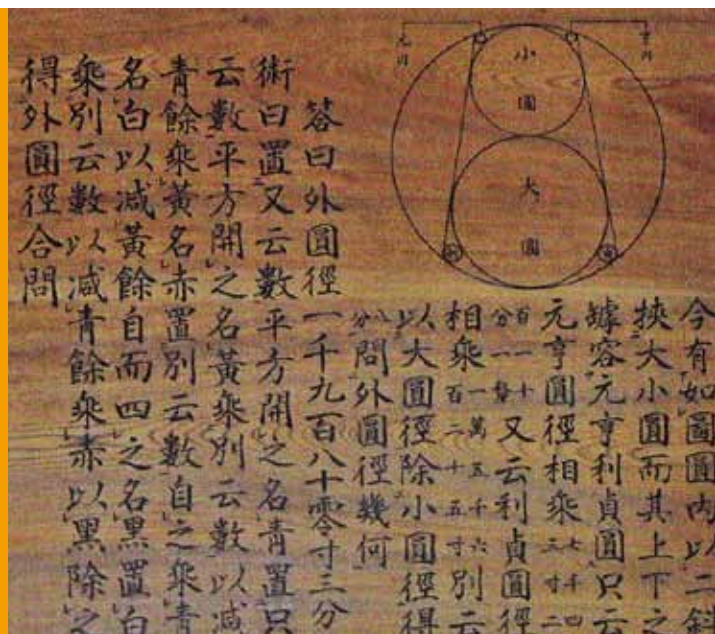 亨円
元円
小圓
大圓
今有如圖圓内以二斜
挾大小圓而其上下之
罅容元亨利貞圓只云
元亨圓徑相乘七千四三寸二
百一十分一釐又云利貞圓徑
相乘一萬五千六百二十五寸別云
以大圓徑除小圓徑得
八分問外圓徑幾何
答曰外圓徑一千九百八十零寸三分
術曰置又云數平方開之名青置只
云數平方開之名黃乘別云數以減
青餘乘黃名赤置別云數自之乘青
名白以減黃餘自而四之名黑置白
乘別云數以減青餘乘赤以黑除之
得外圓徑合問